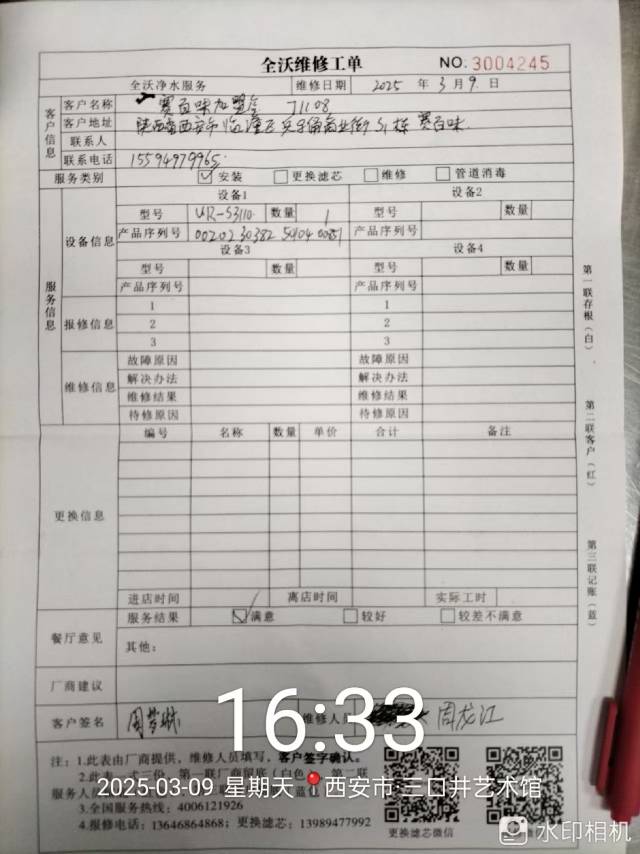 全沃维修工单
NO.3004245
全沃净水服务 维修日期 2025 年 3 月 9 日
客户信息
客户名称 赛百味加盟 71108
客户地址 陕西省西安市临潼区 商业街 51栋 赛百味
联系人
联系电话 15594979965
服务类别 安装 更换滤芯 维修 管道消毒
服务信息
设备信息
设备1 设备2
型号 UR-S3110 数量 1 型号 数量
产品序列号 产品序列号
设备3 设备4
型号 数量 型号 数量
产品序列号 产品序列号
报修信息
1 1
2 2
3 3
维修信息
故障原因 故障原因
解决办法 解决办法
维修结果 维修结果
待修原因 待修原因
更换信息
编号 名称 数量 单价 合计 备注
进店时间 离店时间 实际工时
餐厅意见
服务结果 满意 较好 较差不满意
其他:
厂商建议
客户签名 周梦琳 维修人员 周龙江
第一联存根(白)
第二联客户(红)
第三联记账(蓝)
16:33
注:1.此表由厂商提供,维修人员填写,客户签字确认。
2.此表一式三份,第一联厂商留底(白色 第二联
服务人员
2025-03-09 星期天 西安市·三口井艺术馆
3.全国服务热线:4006121926
4.报修电话:13646864868;更换滤芯:13989477992
更换滤芯微信
水印相机